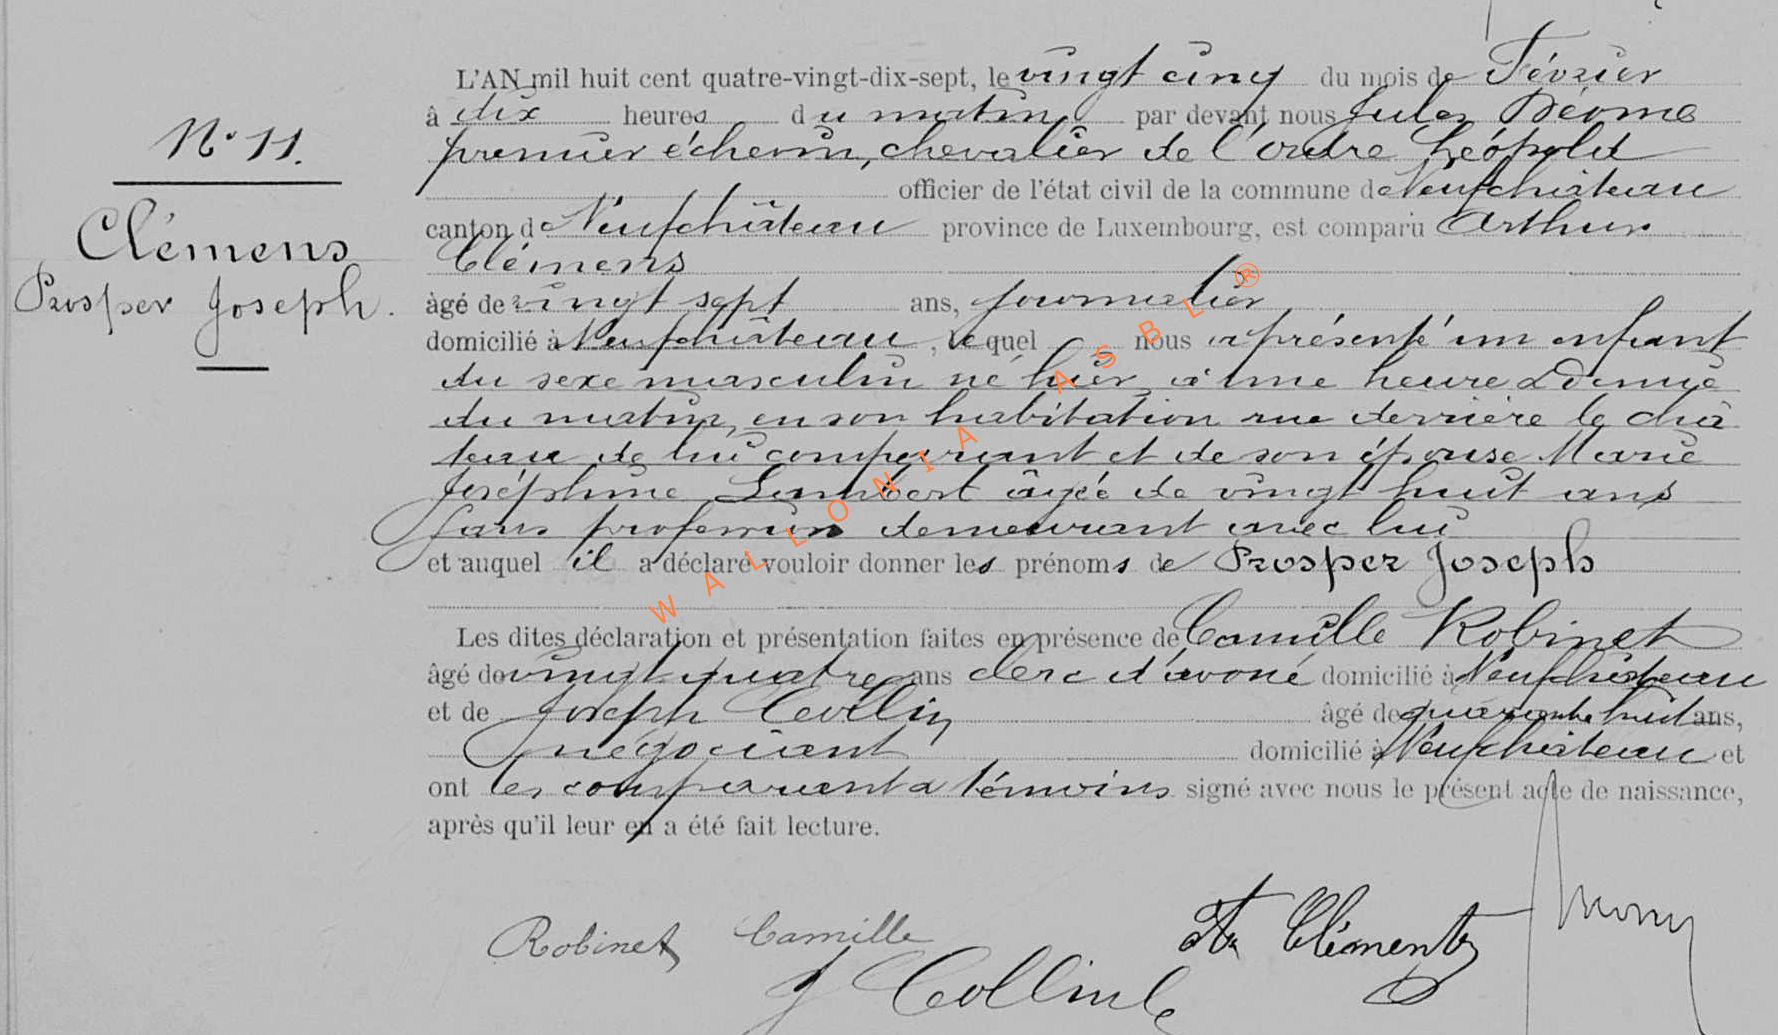 N° 11.
Clémens
Prosper Joseph.
L'AN mil huit cent quatre-vingt-dix-sept, le vingt cinq du mois de Février
à dix heures du matin par devant nous Jules
premier échevin, chevalier de l'ordre Léopold
officier de l'état civil de la commune de Neufchâteau
canton de Neufchâteau province de Luxembourg, est comparu Arthur
Clémens
âgé de vingt sept ans, journalier
domicilié à Neufchâteau, lequel nous a présenté un enfant
du sexe masculin né hier à une heure & demie
du matin, en son habitation rue derrière le châ
teau de lui comparant et de son épouse Marie
Joséphine Lambert âgée de vingt huit ans
sans profession demeurant avec lui
et auquel il a déclaré vouloir donner les prénoms de Prosper Joseph
Les dites déclaration et présentation faites en présence de Camille Robinet
âgé de vingt quatre ans clerc d'avoué domicilié à Neufchâteau
et de Joseph Collin âgé de quarante huit ans,
négociant domicilié à Neufchâteau et
ont les comparant & témoins signé avec nous le présent acte de naissance,
après qu'il leur en a été fait lecture.
Robinet Camille
J Collin
WALLONIA ASBL ®